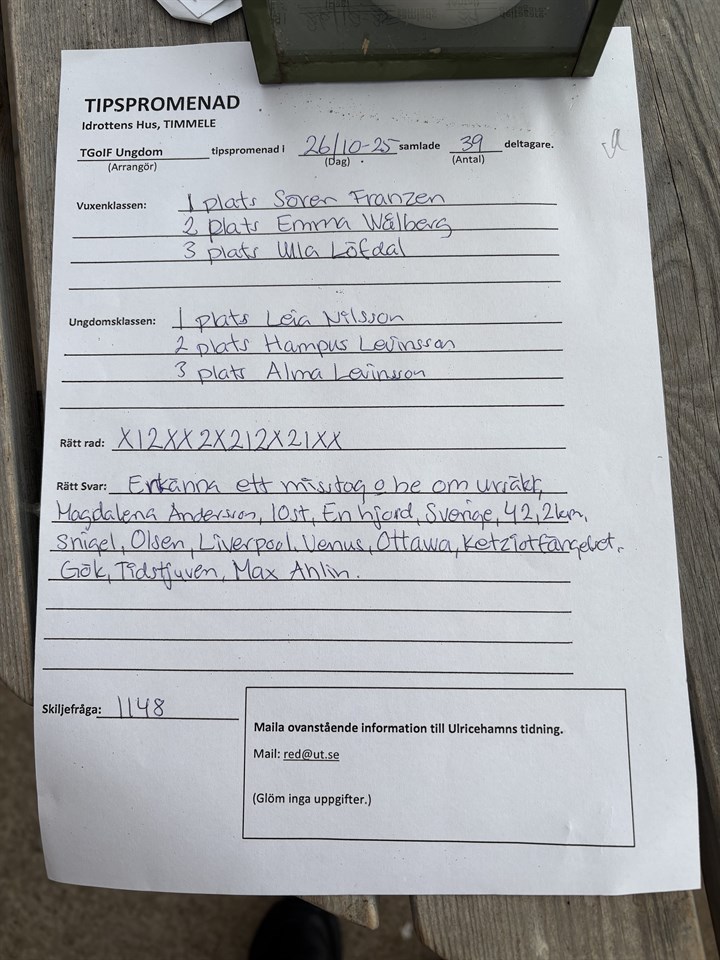 TIPSPROMENAD
Idrottens Hus, TIMMELE
TGoIF Ungdom tipspromenad i 26/10-25 samlade 39 deltagare.
(Arrangör) (Dag) (Antal)
Vuxenklassen: 1 plats Sören Franzen
2 plats Emma Wålberg
3 plats Ulla Löfdal
Ungdomsklassen: 1 plats Leia Nilsson
2 plats Hampus Levinsson
3 plats Alma Levinsson
Rätt rad: X12XX2X212X21XX
Rätt Svar: Erkänna ett misstag o be om ursäkt,
Magdalena Andersson, 10st, En hjord, Sverige, 42,2km,
Snigel, Olsen, Liverpool, Venus, Ottawa, Ketziotfängelset,
Gök, Tidstjuven, Max Ahlin.
Skiljefråga: 1148
Maila ovanstående information till Ulricehamns tidning.
Mail: red@ut.se
(Glöm inga uppgifter.)